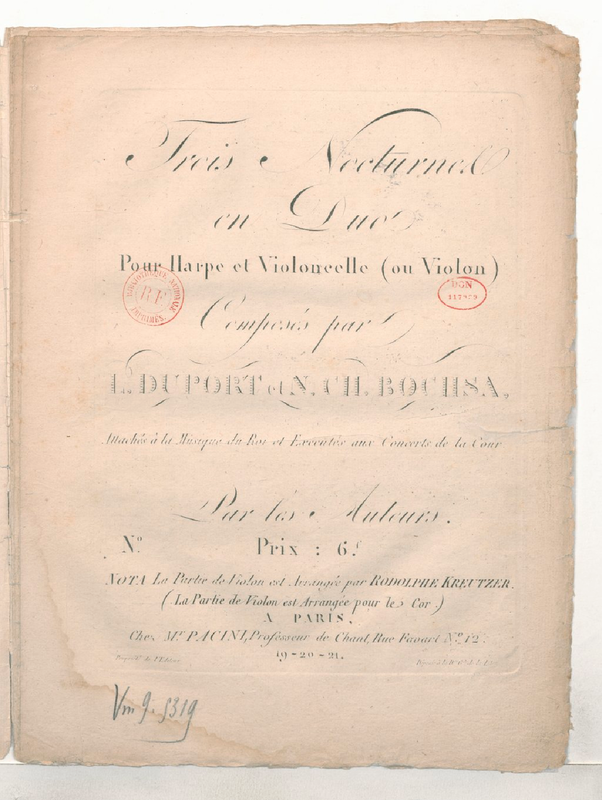 Trois Nocturnes
en Duo
Pour Harpe et Violoncelle (ou Violon)
BIBLIOTHEQUE NATIONALE
R F
IMPRIMES.
DON
Composés par
L. DUPORT et N. CH. BOCHSA,
Attachés à la Musique du Roi et Exécutés aux Concerts de la Cour
Par les Auteurs.
Nº Prix : 6.f
NOTA La Partie de Violon est Arrangée par RODOLPHE KREUTZER.
(La Partie de Violon est Arrangée pour le Cor)
A PARIS,
Chez Mr PACINI, Professeur de Chant, Rue Favart Nº 12.
19-20-21.
Vm 9. 5319